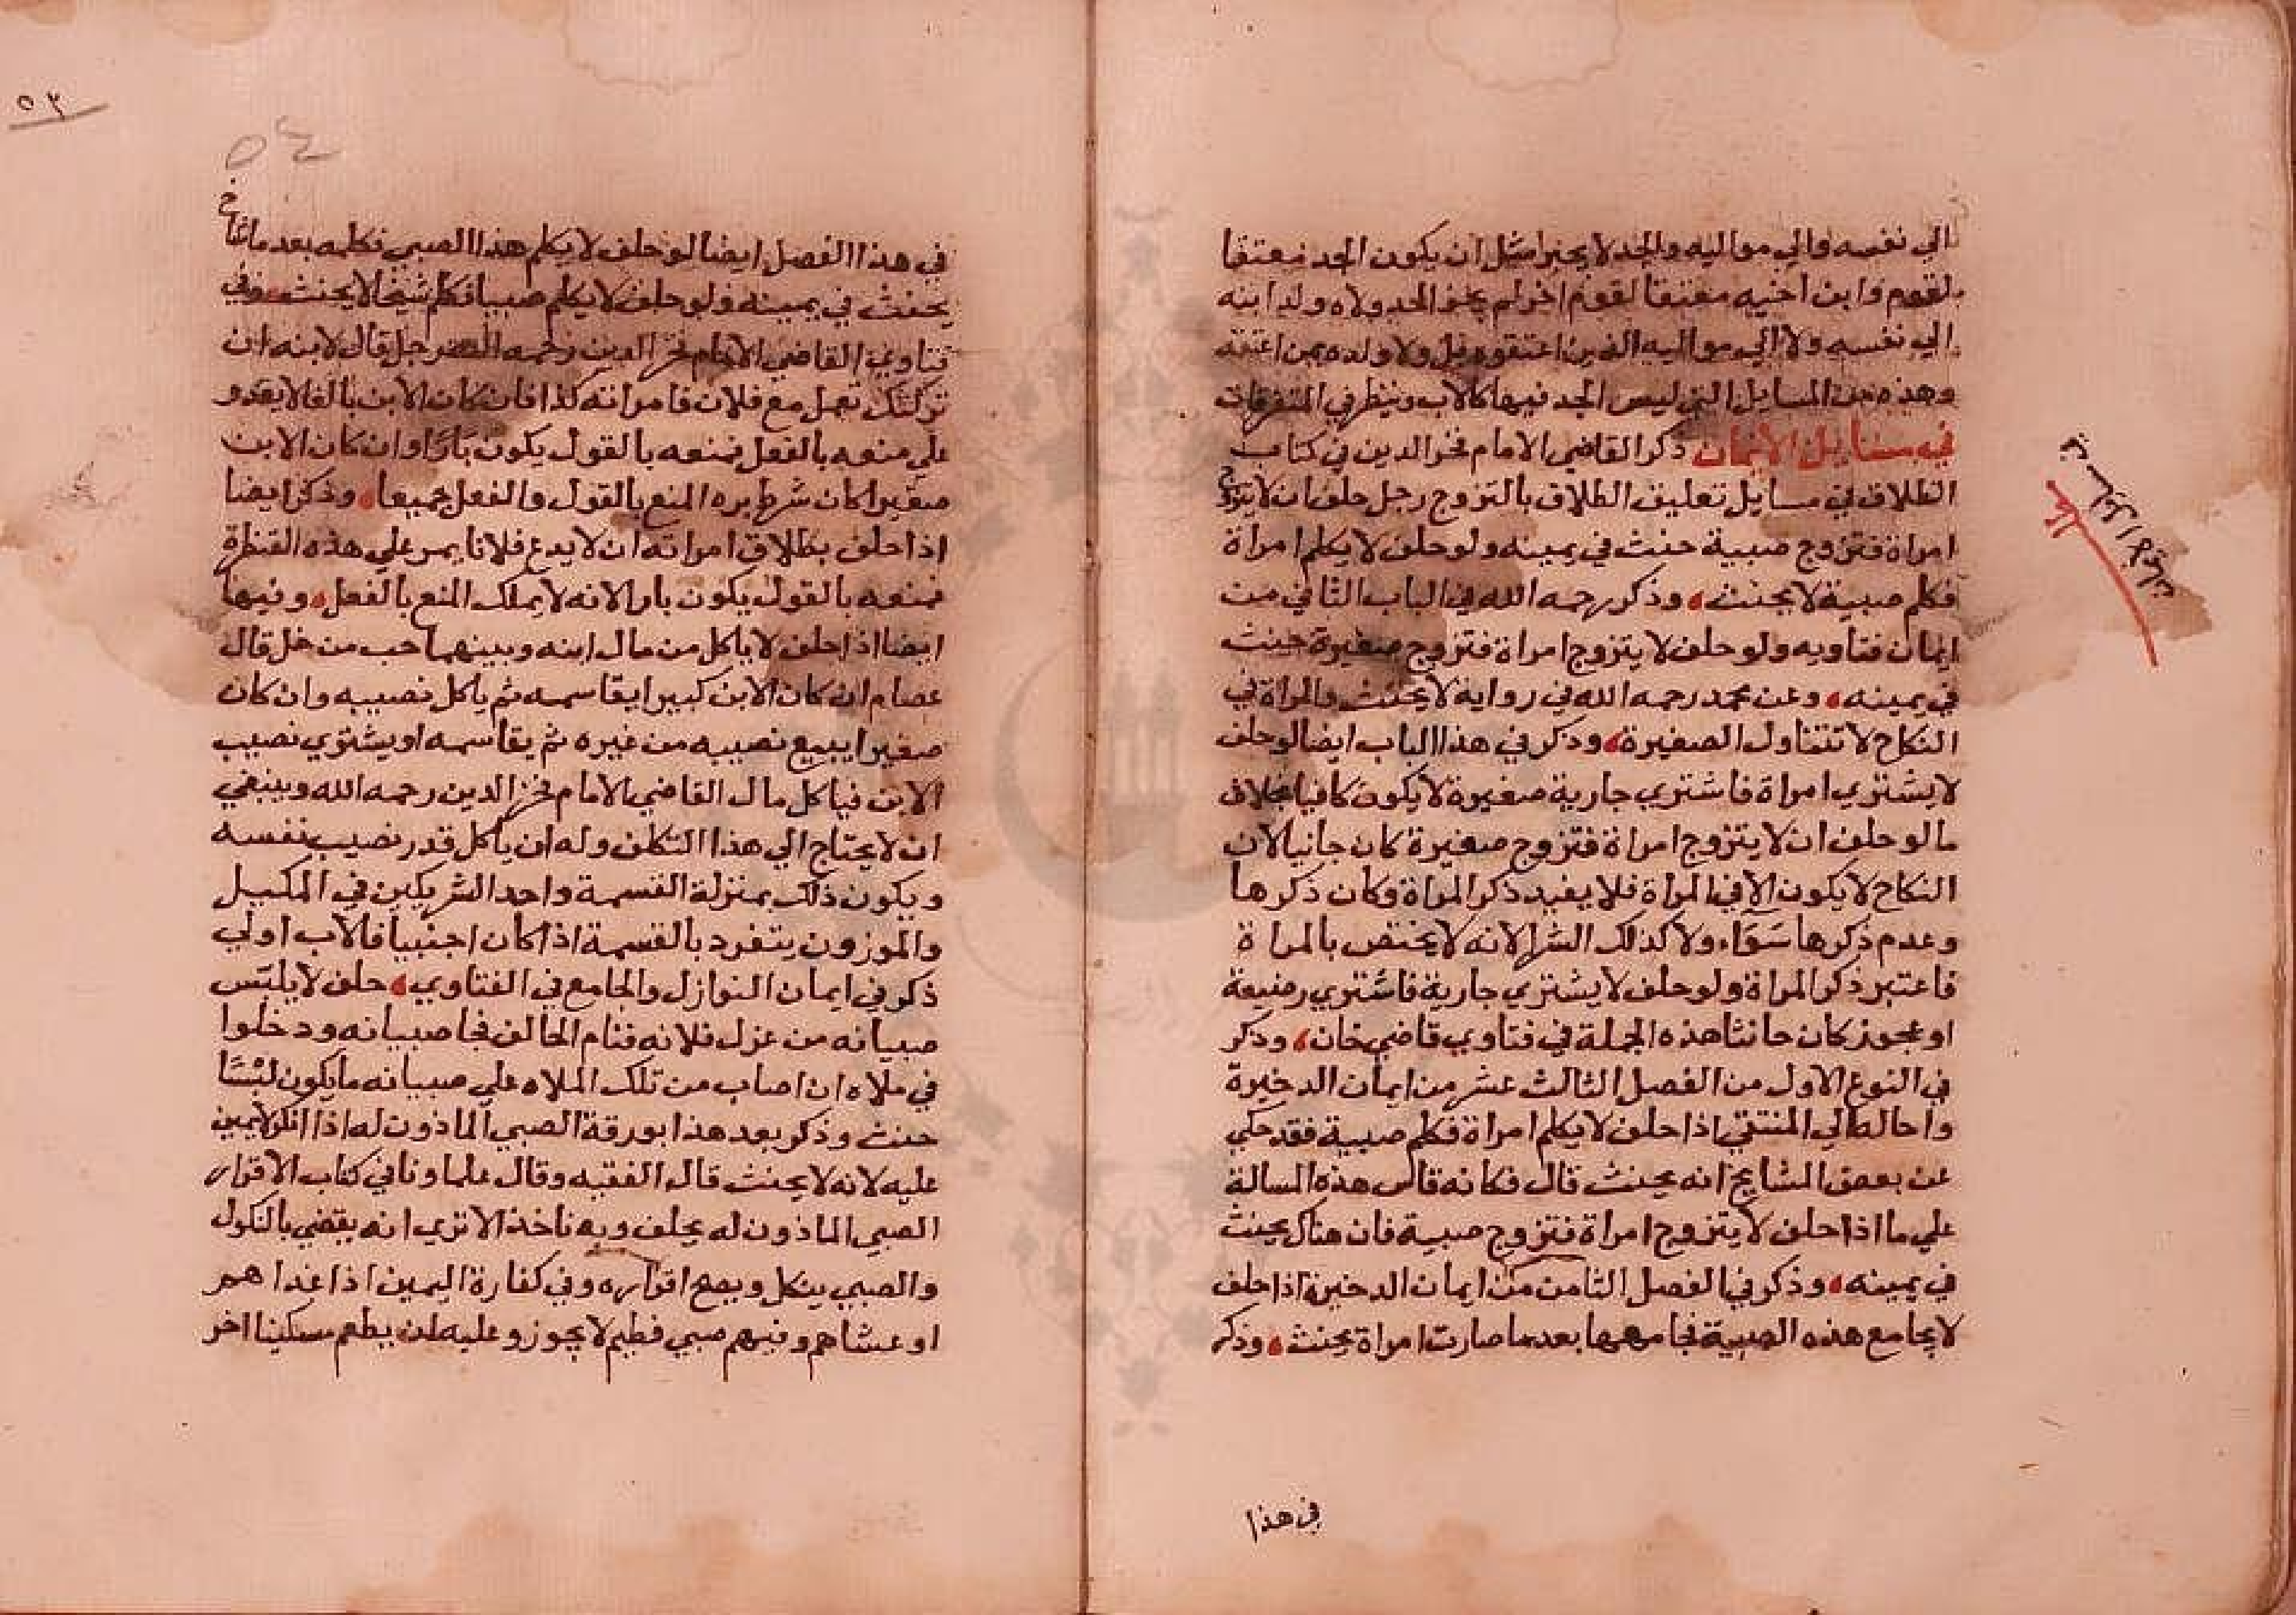 الي نفسه والي مواليه والجد لا يجبر مثل ان يكون الجد معتقا
لقوم وابن اخيه معتقا لقوم اخر لم يجر الجد ولاه ولد ابنه
الي نفسه ولا الي مواليه الذين اعتقوه قبل ولا ولده بمن اعتقه
وهذه من المسايل التي ليس الجد فيها كالاب وينظر في المتفرقات
في مسايل الايمان ذكر القاضي الامام فخر الدين في كتاب
الطلاق في مسايل تعليق الطلاق بالتزوج رجل حلف ان لا يتزوج
امراة فتزوج صبية حنث في يمينه ولو حلف لا يكلم امراة
فكلم صبية لا يحنث وذكر رحمه الله في الباب الثاني من
ايمان فتاويه ولو حلف لا يتزوج امراة فتزوج صغيرة حنث
في يمينه وعن محمد رحمه الله في رواية لا يحنث والمراة في
النكاح لا تتناول الصغيرة وذكر في هذا الباب ايضا لو حلف
لا يشتري امراة فاشتري جارية صغيرة لا يكون كافيا بخلاف
ما لو حلف ان لا يتزوج امراة فتزوج صغيرة كان جانيا لان
النكاح لا يكون الا في المراة فلا يفيد ذكر المراة وكان ذكرها
وعدم ذكرها سواء ولا كذلك الشرا لانه لا يختص بالمراة
فاعتبر ذكر المراة ولو حلف لا يشتري جارية فاشتري رضيعة
او عجوز كان حانثا هذه الجملة في فتاوي قاضي خان وذكر
في النوع الاول من الفصل الثالث عشر من ايمان الدخيرة
واحاله الي المنتقي اذا حلف لا يكلم امراة فكلم صبية فقد حكي
عن بعض المشايخ انه يحنث قال فكانه قاس هذه المسالة
علي ما اذا حلف لا يتزوج امراة فتزوج صبية فان هناك يحنث
في يمينه وذكر في الفصل الثامن من ايمان الدخيرة اذا حلف
لا يجامع هذه الصبية فجامعها بعد ما صارت امراة يحنث وذكر
في هذا
في مسايل الايمان
٥٣
٥٤
في هذا الفصل ايضا لو حلف لا يكلم هذا الصبي فكلمه بعد ما شاخ
يحنث في يمينه ولو حلف لا يكلم صبيا فكلم شيخا لا يحنث وفي
فتاوي القاضي الامام فخر الدين رحمه الله رجل قال لابنه ان
تركتك تعمل مع فلان فامراته كذا فان كان الابن بالغا لا يقدر
علي منعه بالفعل فمنعه بالقول يكون بارا وان كان الابن
صغيرا كان شرط بره المنع بالقول والفعل جميعا وذكر ايضا
اذا حلف بطلاق امراته ان لا يدع فلانا يمر علي هذه القنطرة
فمنعه بالقول يكون بارا لانه لا يملك المنع بالفعل وفيها
ايضا اذا حلف لا ياكل من مال ابنه وبينهما حب من خل قال
عصام ان كان الابن كبيرا يقاسمه ثم ياكل نصيبه وان كان
صغيرا يبيع نصيبه من غيره ثم يقاسمه او يشتري نصيب
الابن فياكل قال القاضي الامام فخر الدين رحمه الله وينبغي
ان لا يحتاج الي هذا التكلف وله ان ياكل قدر نصيب نفسه
ويكون ذلك بمنزلة القسمة واحد الشريكين في المكيل
والموزون يتفرد بالقسمة اذا كان اجنبيا فالاب اولي
ذكر في ايمان النوازل والجامع في الفتاوي حلف لا يلبس
صبيانه من غزل فلانه فنام الحالف فجا صبيانه ودخلوا
في ملاه ان اصاب من تلك الملاه علي صبيانه ما يكون لبسا
حنث وذكر بعد هذا بورقة الصبي الماذون له اذا انكر لا يمين
عليه لانه لا يحنث قال الفقيه وقال علماونا في كتاب الاقرار
الصبي الماذون له يحلف وبه ناخذ الا تري انه يقضي بالنكول
والصبي ينكل ويصح اقراره وفي كفارة اليمين اذا غدا هم
او عشاهم وفيهم صبي فطيم لا يجوز وعليه ان يطعم مسكينا اخر